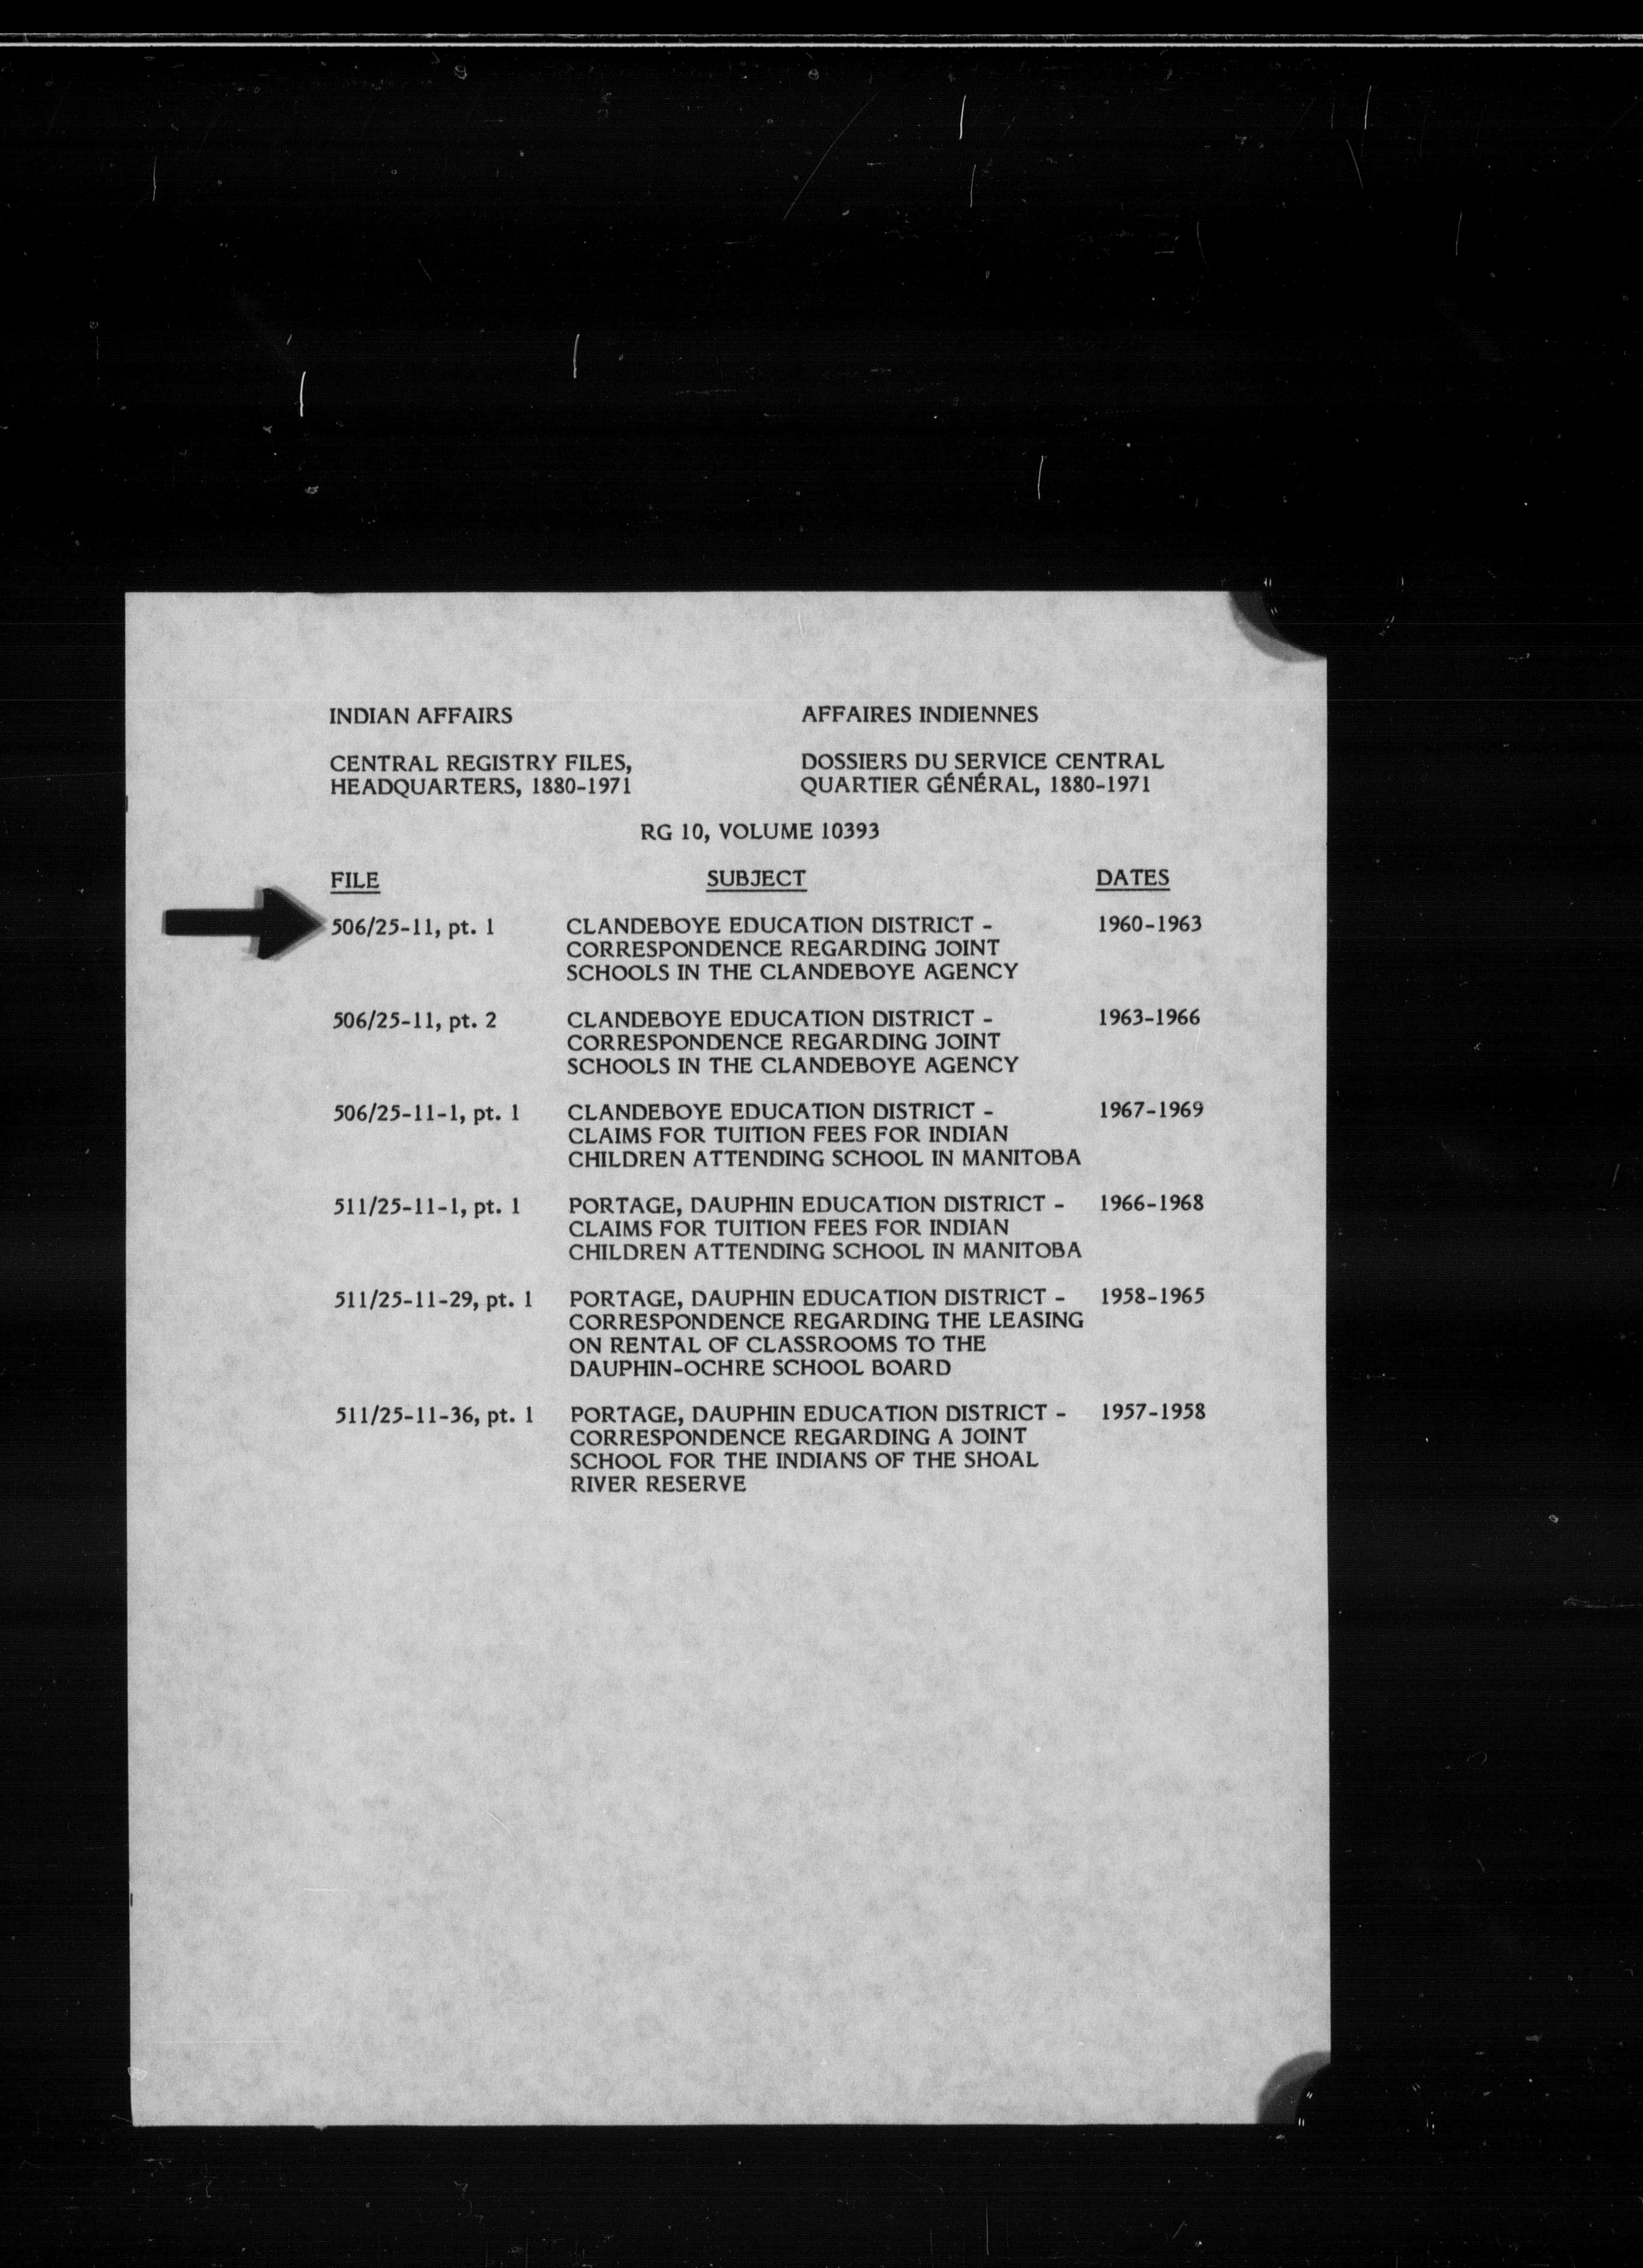 INDIAN AFFAIRS
AFFAIRES INDIENNES
CENTRAL REGISTRY FILES,
HEADQUARTERS, 1880-1971
DOSSIERS DU SERVICE CENTRAL
QUARTIER GÉNÉRAL, 1880-1971
RG 10, VOLUME 10393
FILE SUBJECT DATES
506/25-11, pt. 1 CLANDEBOYE EDUCATION DISTRICT - 1960-1963
CORRESPONDENCE REGARDING JOINT
SCHOOLS IN THE CLANDEBOYE AGENCY
506/25-11, pt. 2 CLANDEBOYE EDUCATION DISTRICT - 1963-1966
CORRESPONDENCE REGARDING JOINT
SCHOOLS IN THE CLANDEBOYE AGENCY
506/25-11-1, pt. 1 CLANDEBOYE EDUCATION DISTRICT - 1967-1969
CLAIMS FOR TUITION FEES FOR INDIAN
CHILDREN ATTENDING SCHOOL IN MANITOBA
511/25-11-1, pt. 1 PORTAGE, DAUPHIN EDUCATION DISTRICT - 1966-1968
CLAIMS FOR TUITION FEES FOR INDIAN
CHILDREN ATTENDING SCHOOL IN MANITOBA
511/25-11-29, pt. 1 PORTAGE, DAUPHIN EDUCATION DISTRICT - 1958-1965
CORRESPONDENCE REGARDING THE LEASING
ON RENTAL OF CLASSROOMS TO THE
DAUPHIN-OCHRE SCHOOL BOARD
511/25-11-36, pt. 1 PORTAGE, DAUPHIN EDUCATION DISTRICT - 1957-1958
CORRESPONDENCE REGARDING A JOINT
SCHOOL FOR THE INDIANS OF THE SHOAL
RIVER RESERVE